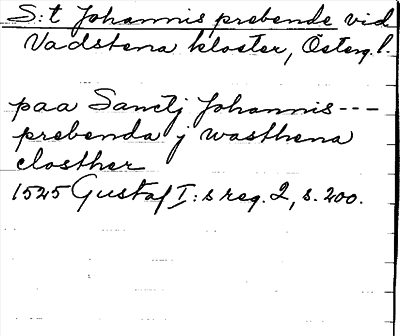 S:t Johannis prebende vid
Vadstena kloster, Österg.l.
paa Sanctj Johannis ---
prebenda j wasthena
closther
1525 Gustaf I:s reg. 2, s. 200.